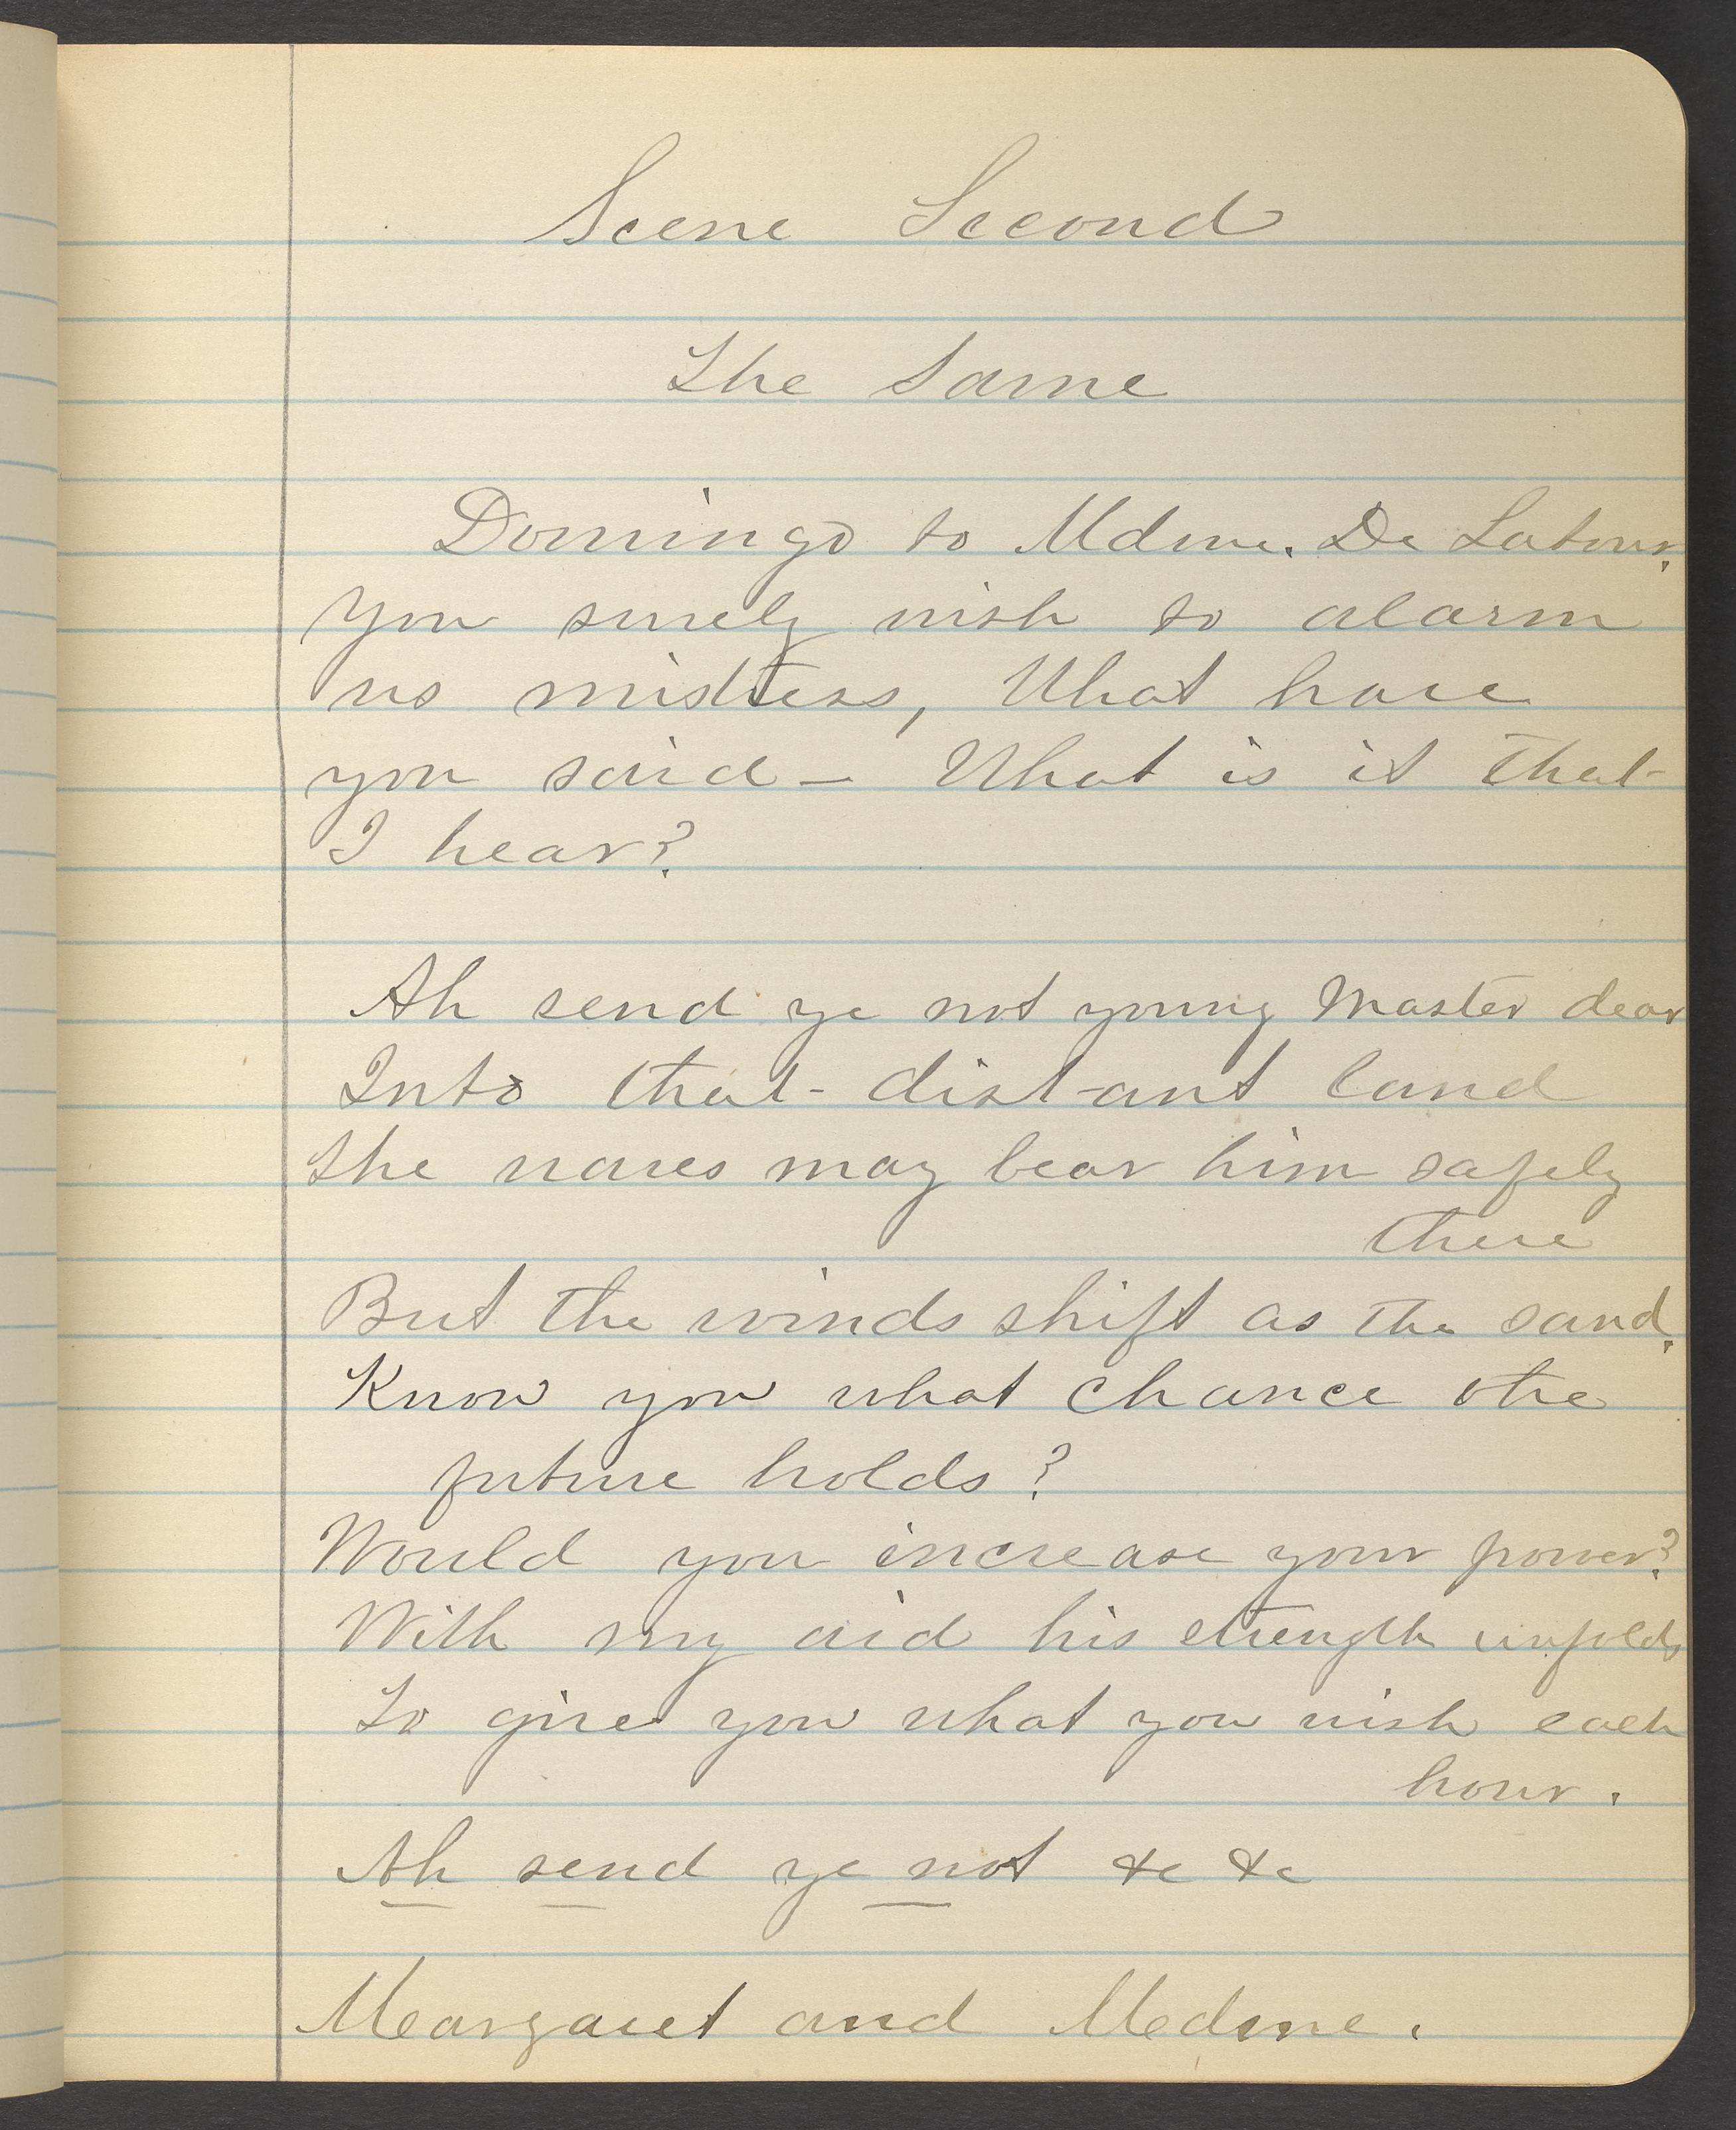 Scene Second
The Same
Domingo to Mdme. De Latour.
You surely wish to alarm
us mistress, What have
you said – What is it that
I hear?
Ah send ye not young Master dear
Into that distant land
The waves may bear him safely
there
But the winds shift as the sand.
Know you what chance the
future holds?
Would you increase your power?
With my aid his strength unfolds
To give you what you wish each
hour.
Ah send ye not &c &c
Margaret and Mdme.